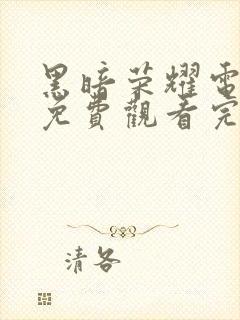 黑暗荣耀電
免費觀看完
清各